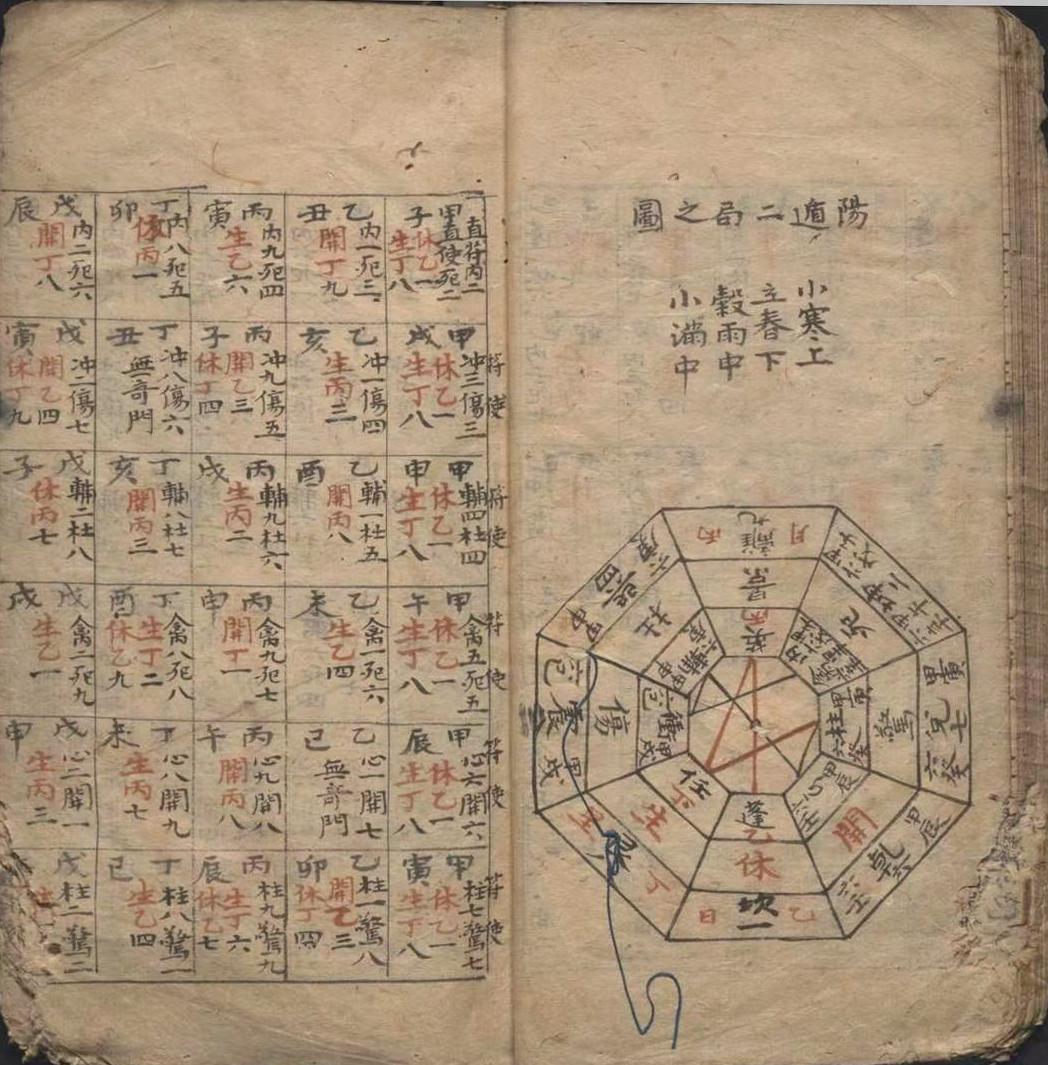 陽遁二局之圖
小寒上
立春下
穀雨中
小滿中
月 離九 丙
景
丙英
死
甲寅
兌七
六癸
驚
甲寅
柱
六癸
甲辰
乾六
六壬
開
甲辰
心
六壬
乙
坎一
日
休
乙
蓬
丁
艮八
生
任
丁
甲戌
震三
傷
衝
甲戌
六庚
巽四
甲申
杜
輔
甲子
直符内二
直使死二
休乙一
生丁八
乙丑
内一死三
開丁九
丙寅
内九死四
生乙六
丁卯
内八死五
休丙一
戊辰
内二死六
開丁八
符使
甲戌
冲三傷三
休乙一
生丁八
乙亥
冲一傷四
生丙二
丙子
冲九傷五
開乙三
休丁四
丁丑
冲八傷六
無奇門
戊寅
冲二傷七
開乙四
休丁九
符使
甲申
輔四杜四
休乙一
生丁八
乙酉
輔一杜五
開丙八
丙戌
輔九杜六
生丙二
丁亥
輔八杜七
開丙三
戊子
輔二杜八
休丙七
符使
甲午
禽五死五
休乙一
生丁八
乙未
禽一死六
生乙四
丙申
禽九死七
開丁一
丁酉
禽八死八
生丁二
休乙九
戊戌
禽二死九
生乙一
符使
甲辰
心六開六
休乙一
生丁八
乙巳
心一開七
無奇門
丙午
心九開八
開丙八
丁未
心八開九
生丙七
戊申
心二開一
生丙三
符使
甲寅
柱七驚七
休乙一
生丁八
乙卯
柱一驚八
開乙三
休丁四
丙辰
柱九驚九
生丁六
休乙七
丁巳
柱八驚一
生乙四
戊
柱二驚二